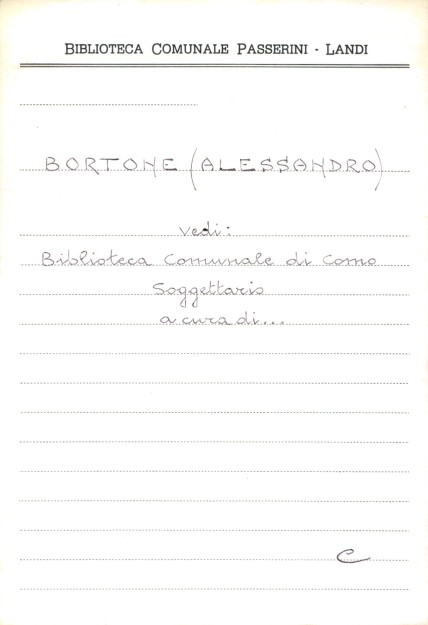 BIBLIOTECA COMUNALE PASSERINI - LANDI
BORTONE (ALESSANDRO)
Vedi:
Biblioteca Comunale di Como
Soggettario
a cura di...
C